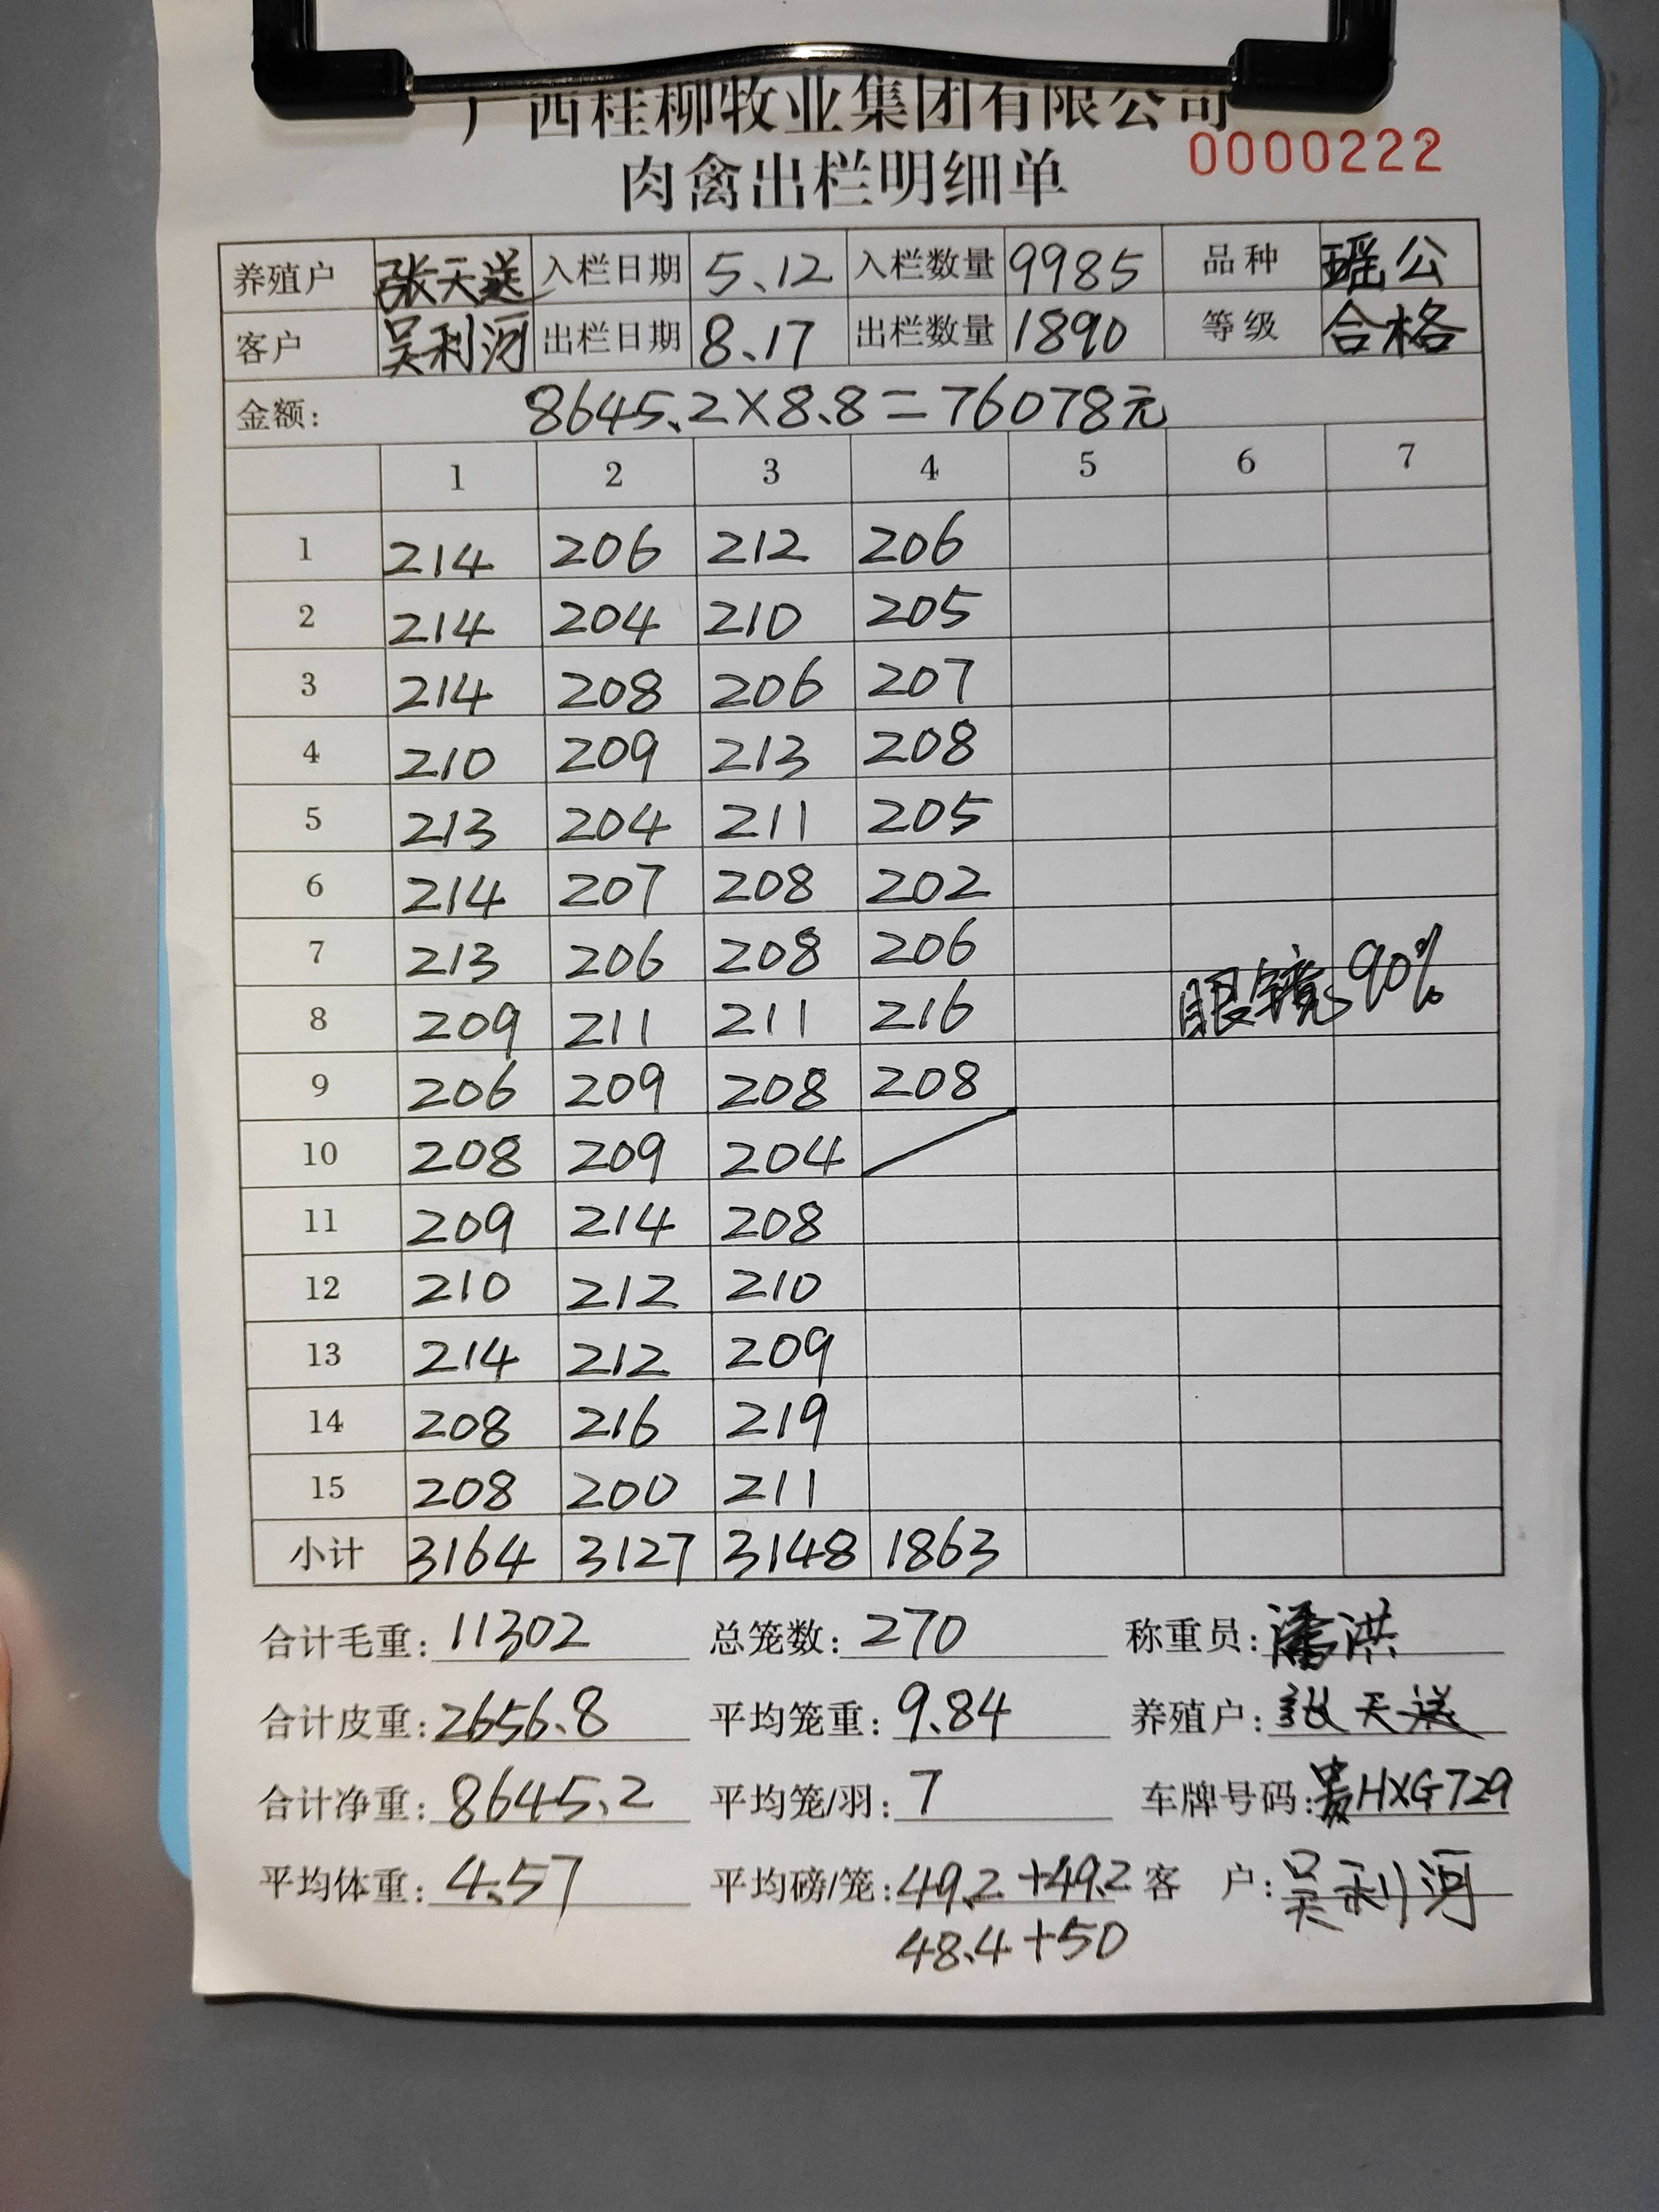 广西桂柳牧业集团有限公司
0000222
肉禽出栏明细单
养殖户 张天送 入栏日期 5.12 入栏数量 9985 品种 瑶公
客户 吴利河 出栏日期 8.17 出栏数量 1890 等级 合格
金额: 8645.2×8.8=76078元
1 2 3 4 5 6 7
1 214 206 212 206
2 214 204 210 205
3 214 208 206 207
4 210 209 213 208
5 213 204 211 205
6 214 207 208 202
7 213 206 208 206
8 209 211 211 216 眼镜90%
9 206 209 208 208
10 208 209 204
11 209 214 208
12 210 212 210
13 214 212 209
14 208 216 219
15 208 200 211
小计 3164 3127 3148 1863
合计毛重: 11302 总笼数: 270 称重员: 潘洪
合计皮重: 2656.8 平均笼重: 9.84 养殖户: 张天送
合计净重: 8645.2 平均笼/羽: 7 车牌号码: HXG729
平均体重: 4.57 平均磅/笼: 49.2+49.2 客 户: 吴利河
48.4+50